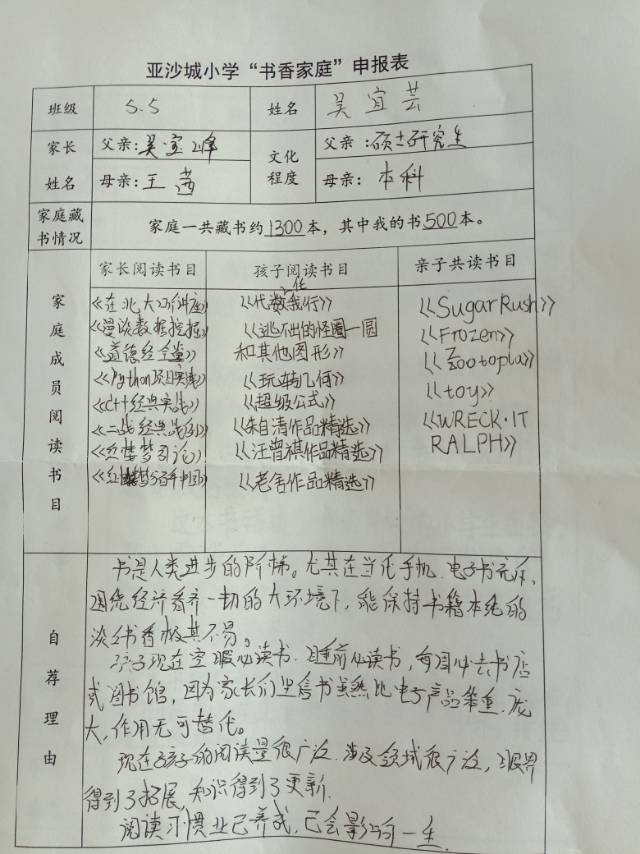 亚沙城小学“书香家庭”申报表
班级 5.5 姓名 吴宜芸
家长姓名 父亲:吴宝峰 文化程度 父亲:硕士研究生
母亲:王茜 母亲:本科
家庭藏书情况 家庭一共藏书约1300本，其中我的书500本。
家庭成员阅读书目
家长阅读书目 孩子阅读书目 亲子共读书目
《在北大听讲座》
《漫谈数据挖掘》
《道德经全鉴》
《Python项目实战》
《C++经典实战》
《二战经典战役》
《红楼梦引论》
《代数我行》
《逃不出的怪圈—圆
和其他图形》
《玩转几何》
《超级公式》
《朱自清作品精选》
《汪曾祺作品精选》
《老舍作品精选》
《SugarRush》
《Frozen》
《Zootopia》
《toy》
《WRECK·IT
RALPH》
自荐理由
书是人类进步的阶梯。尤其在当代手机、电子书充斥、
围绕经济看齐一切的大环境下，能保持书籍本纯的
淡淡书香极其不易。
孩子现在空暇必读书、睡前必读书，每周必去书店
或图书馆，因为家长们坚信书虽然比电子产品笨重、庞
大，作用无可替代。
现在孩子的阅读量很广泛，涉及领域很广泛，眼界
得到了拓展，知识得到了更新。
阅读习惯业已养成，已会影响一生。